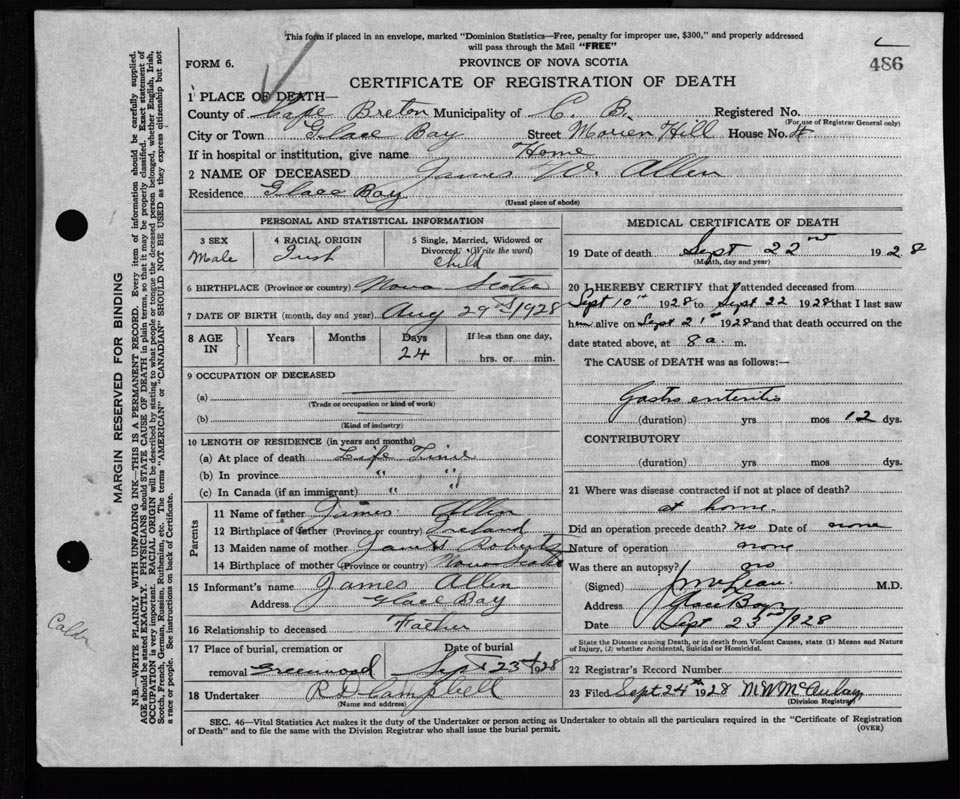 This form if placed in an envelope, marked "Dominion Statistics—Free, penalty for improper use, $300," and properly addressed
will pass through the Mail "FREE"
FORM 6.
PROVINCE OF NOVA SCOTIA
486
CERTIFICATE OF REGISTRATION OF DEATH
1 PLACE OF DEATH—
County of Cape Breton Municipality of C. B. Registered No.
(For use of Registrar General only)
City or Town Glace Bay Street Morien Hill House No. 4
If in hospital or institution, give name Home
2 NAME OF DECEASED James W. Allen
Residence Glace Bay
(Usual place of abode)
PERSONAL AND STATISTICAL INFORMATION
3 SEX Male
4 RACIAL ORIGIN Irish
5 Single, Married, Widowed or Divorced. (Write the word) Child
6 BIRTHPLACE (Province or country) Nova Scotia
7 DATE OF BIRTH (month, day and year) Aug 29th 1928
8 AGE IN Years Months Days 24 If less than one day, hrs. or min.
9 OCCUPATION OF DECEASED
(a)
(Trade or occupation or kind of work)
(b)
(Kind of industry)
10 LENGTH OF RESIDENCE (in years and months)
(a) At place of death Life Time
(b) In province " "
(c) In Canada (if an immigrant) " "
Parents
11 Name of father James Allen
12 Birthplace of father (Province or country) Ireland
13 Maiden name of mother Roberts
14 Birthplace of mother (Province or country) Nova Scotia
15 Informant's name James Allen
Address Glace Bay
16 Relationship to deceased Father
17 Place of burial, cremation or removal Greenwood
Date of burial Sept 23rd 1928
18 Undertaker R D Campbell
(Name and address)
MEDICAL CERTIFICATE OF DEATH
19 Date of death Sept 22nd 1928
(Month, day and year)
20 I HEREBY CERTIFY that I attended deceased from
Sept 10th 1928 to Sept 22 1928 that I last saw
him alive on Sept 21st 1928 and that death occurred on the
date stated above, at 8 a. m.
The CAUSE of DEATH was as follows:—
Gastro enteritis
(duration) yrs mos 12 dys.
CONTRIBUTORY
(duration) yrs mos dys.
21 Where was disease contracted if not at place of death?
at home.
Did an operation precede death? No Date of none
Nature of operation none
Was there an autopsy? no
(Signed) McLean. M.D.
Address Glace Bay
Date Sept 23rd 1928
State the Disease causing Death, or in death from Violent Causes, state (1) Means and Nature
of Injury, (2) whether Accidental, Suicidal or Homicidal.
22 Registrar's Record Number
23 Filed Sept 24th 1928 M W McAulay
(Division Registrar)
SEC. 46—Vital Statistics Act makes it the duty of the Undertaker or person acting as Undertaker to obtain all the particulars required in the "Certificate of Registration
of Death" and to file the same with the Division Registrar who shall issue the burial permit.
(OVER)
MARGIN RESERVED FOR BINDING
N.B.—WRITE PLAINLY WITH UNFADING INK—THIS IS A PERMANENT RECORD. Every item of information should be carefully supplied.
AGE should be stated EXACTLY. PHYSICIANS should STATE CAUSE OF DEATH in plain terms, so that it may be properly classified. Exact statement of
OCCUPATION is very important. RACIAL ORIGIN will be described by stating to what people or tongue the deceased person belonged, whether English, Irish,
Scotch, French, German, Russian, Ruthenian, etc. The terms "AMERICAN" or "CANADIAN" SHOULD NOT BE USED as they express citizenship but not
a race or people. See instructions on back of Certificate.